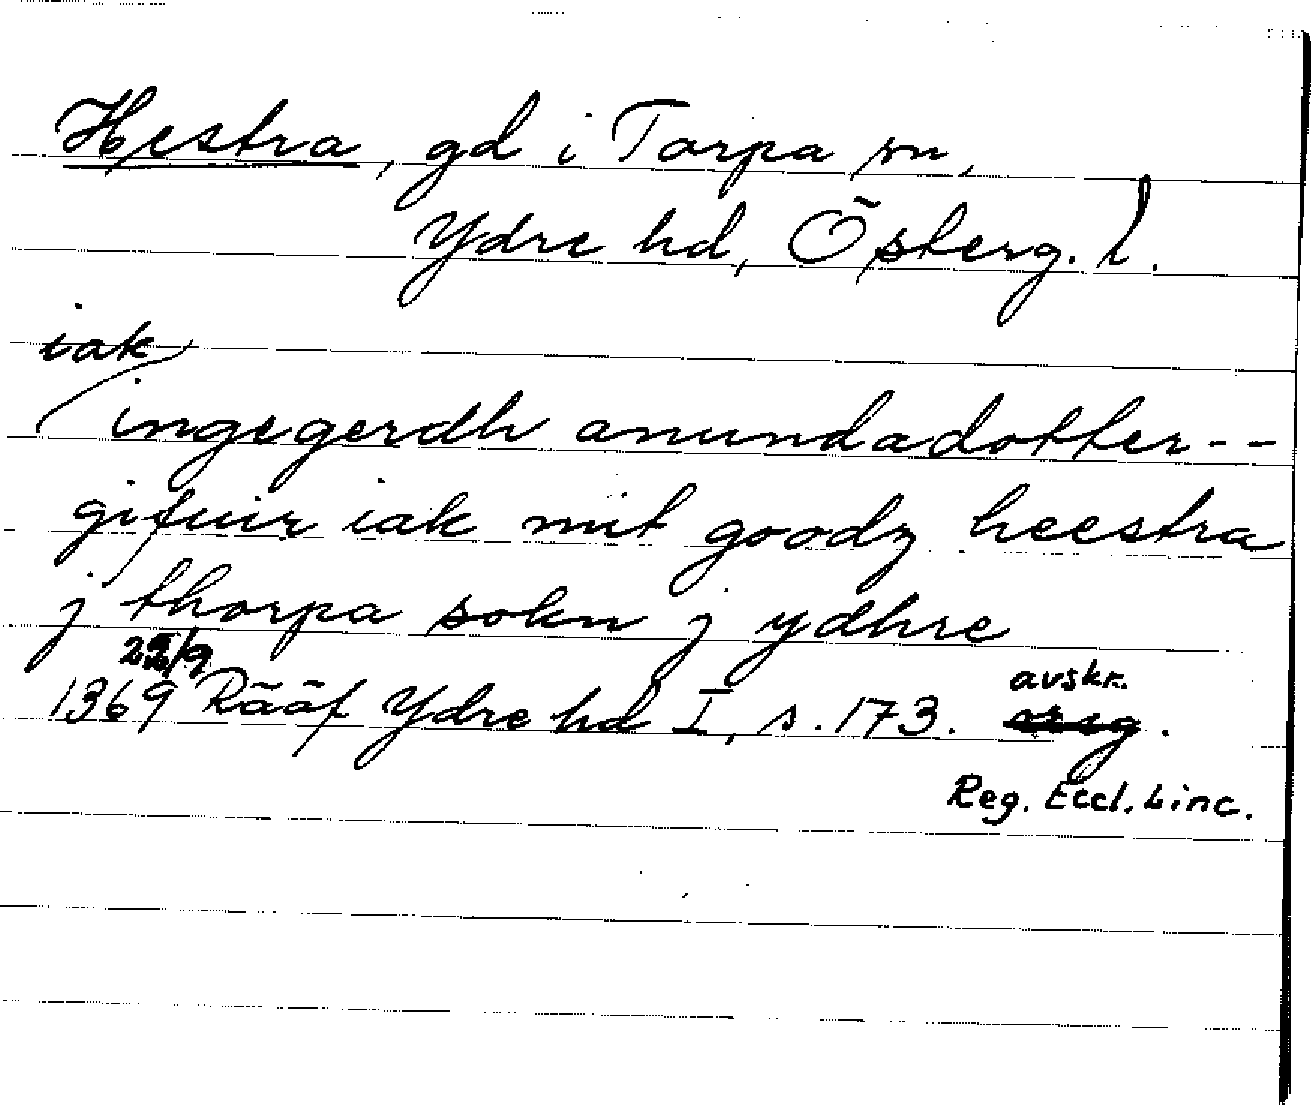 Hestra, gd i Torpa sn,
Ydre hd, Österg. l.
iak
ingegerdh anundadotter--
gifuir iak mit goodz heestra
j thorpa sokn j ydhre
1369 Rääf Ydre hd I, s. 173. avskr.
Reg. Eccl. Linc.